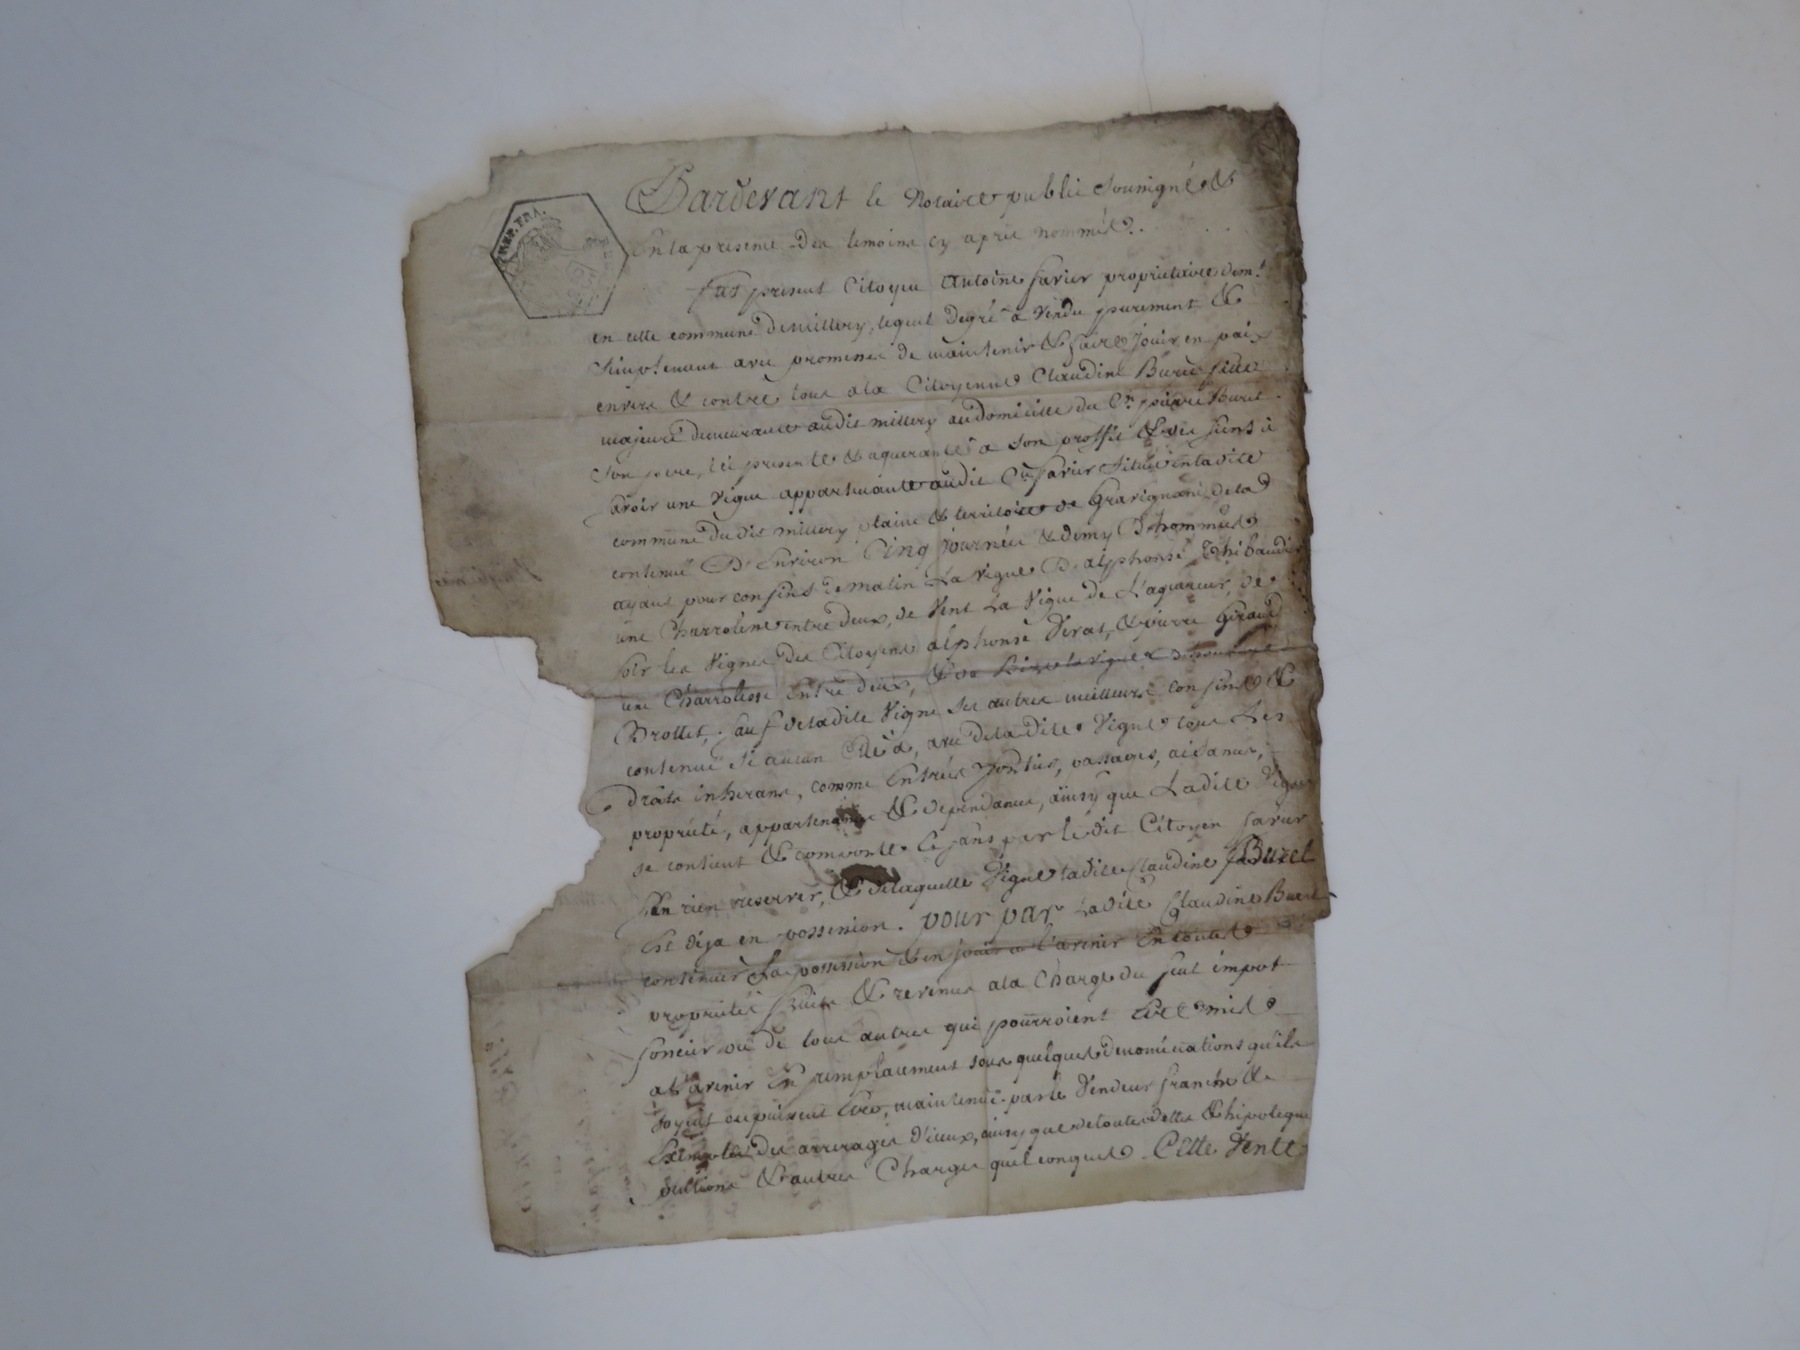 REP. FRA.
Pardevant le Notaire public Soussigné &
En la presence des temoins cy aprés nommés.
fut present Citoyen Antoine favier proprietaire demt.
en cette commune de millery, lequel de gré a vendu purement &
Simplement avec promesse de maintenir & faire jouir en paix
envers & contre tous a la Citoyenne Claudine Buret fille
majeure demeurante audit millery au domicille du Cn. pierre Buret
Son pere, icy presente & aquerante a son proffit & des siens à
savoir une vigne appartenante audit Cn favier Située en ladite
commune dudit millery plaine & territoire de Gravignan de la
contenue D'Environ Cinq journées & demy D'hommes
ayant pour confins de matin La vigne D'alphonse Thibaudier
une Charroliere entre deux, de vent La vigne de L'aquereur, de
soir les vignes des Citoyens alphonse Verat, & pierre Giraud
une Charroliere Entre deux, & de bize la vigne
Brottet, sauf de ladite vigne ses autres meilleurs confins &
contenue Si aucun Elle a, avec de ladite vigne tous Les
droits inherans, comme Entrées sorties, passages, aisances,
proprieté, appartenance & dependance, ainsy que Ladite vigne
se contient & comporte Sans par ledit Citoyen favier
En rien reserver, & de laquelle vigne ladite Claudine Buret
Est deja en possession. pour par Ladite Claudine Buret
continuer Sa possession & en jouir a l'avenir En toute
proprieté fruits & revenus a la Charge du seul impot
foncier ou de tous autres qui pourroient Etre mis
a l'avenir En remplacement sous quelques denominations qu'ils
soyent ou puissent Etre, maintenue par le vendeur franche &
Exempte des arrerages d'iceux, ainsy que de toute dette & hipoteque
& autres Charges quelconques. Cette Vente